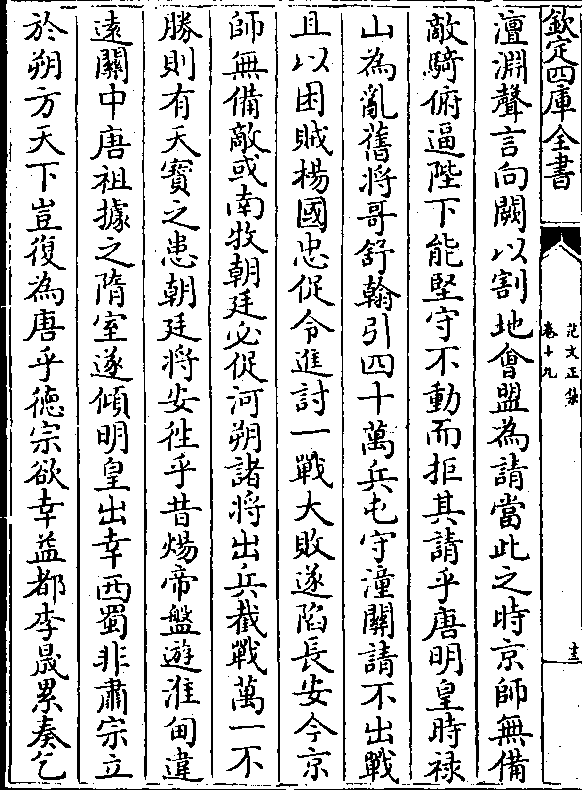 欽定四庫全書
范文正集
卷十九
十三
澶淵聲言向闕以割地會盟為請當此之時京師無備
敵騎俯逼陛下能堅守不動而拒其請乎唐明皇時禄
山為亂舊將哥舒翰引四十萬兵屯守潼關請不出戰
且以困賊楊國忠促令進討一戰大敗遂陷長安今京
師無備敵或南牧朝廷必促河朔諸將出兵截戰萬一不
勝則有天寳之患朝廷將安徃乎昔煬帝盤遊淮甸違
遠關中唐祖據之隋室遂傾明皇出幸西蜀非肅宗立
於朔方天下豈復為唐乎徳宗欲幸益都李晟累奏乞